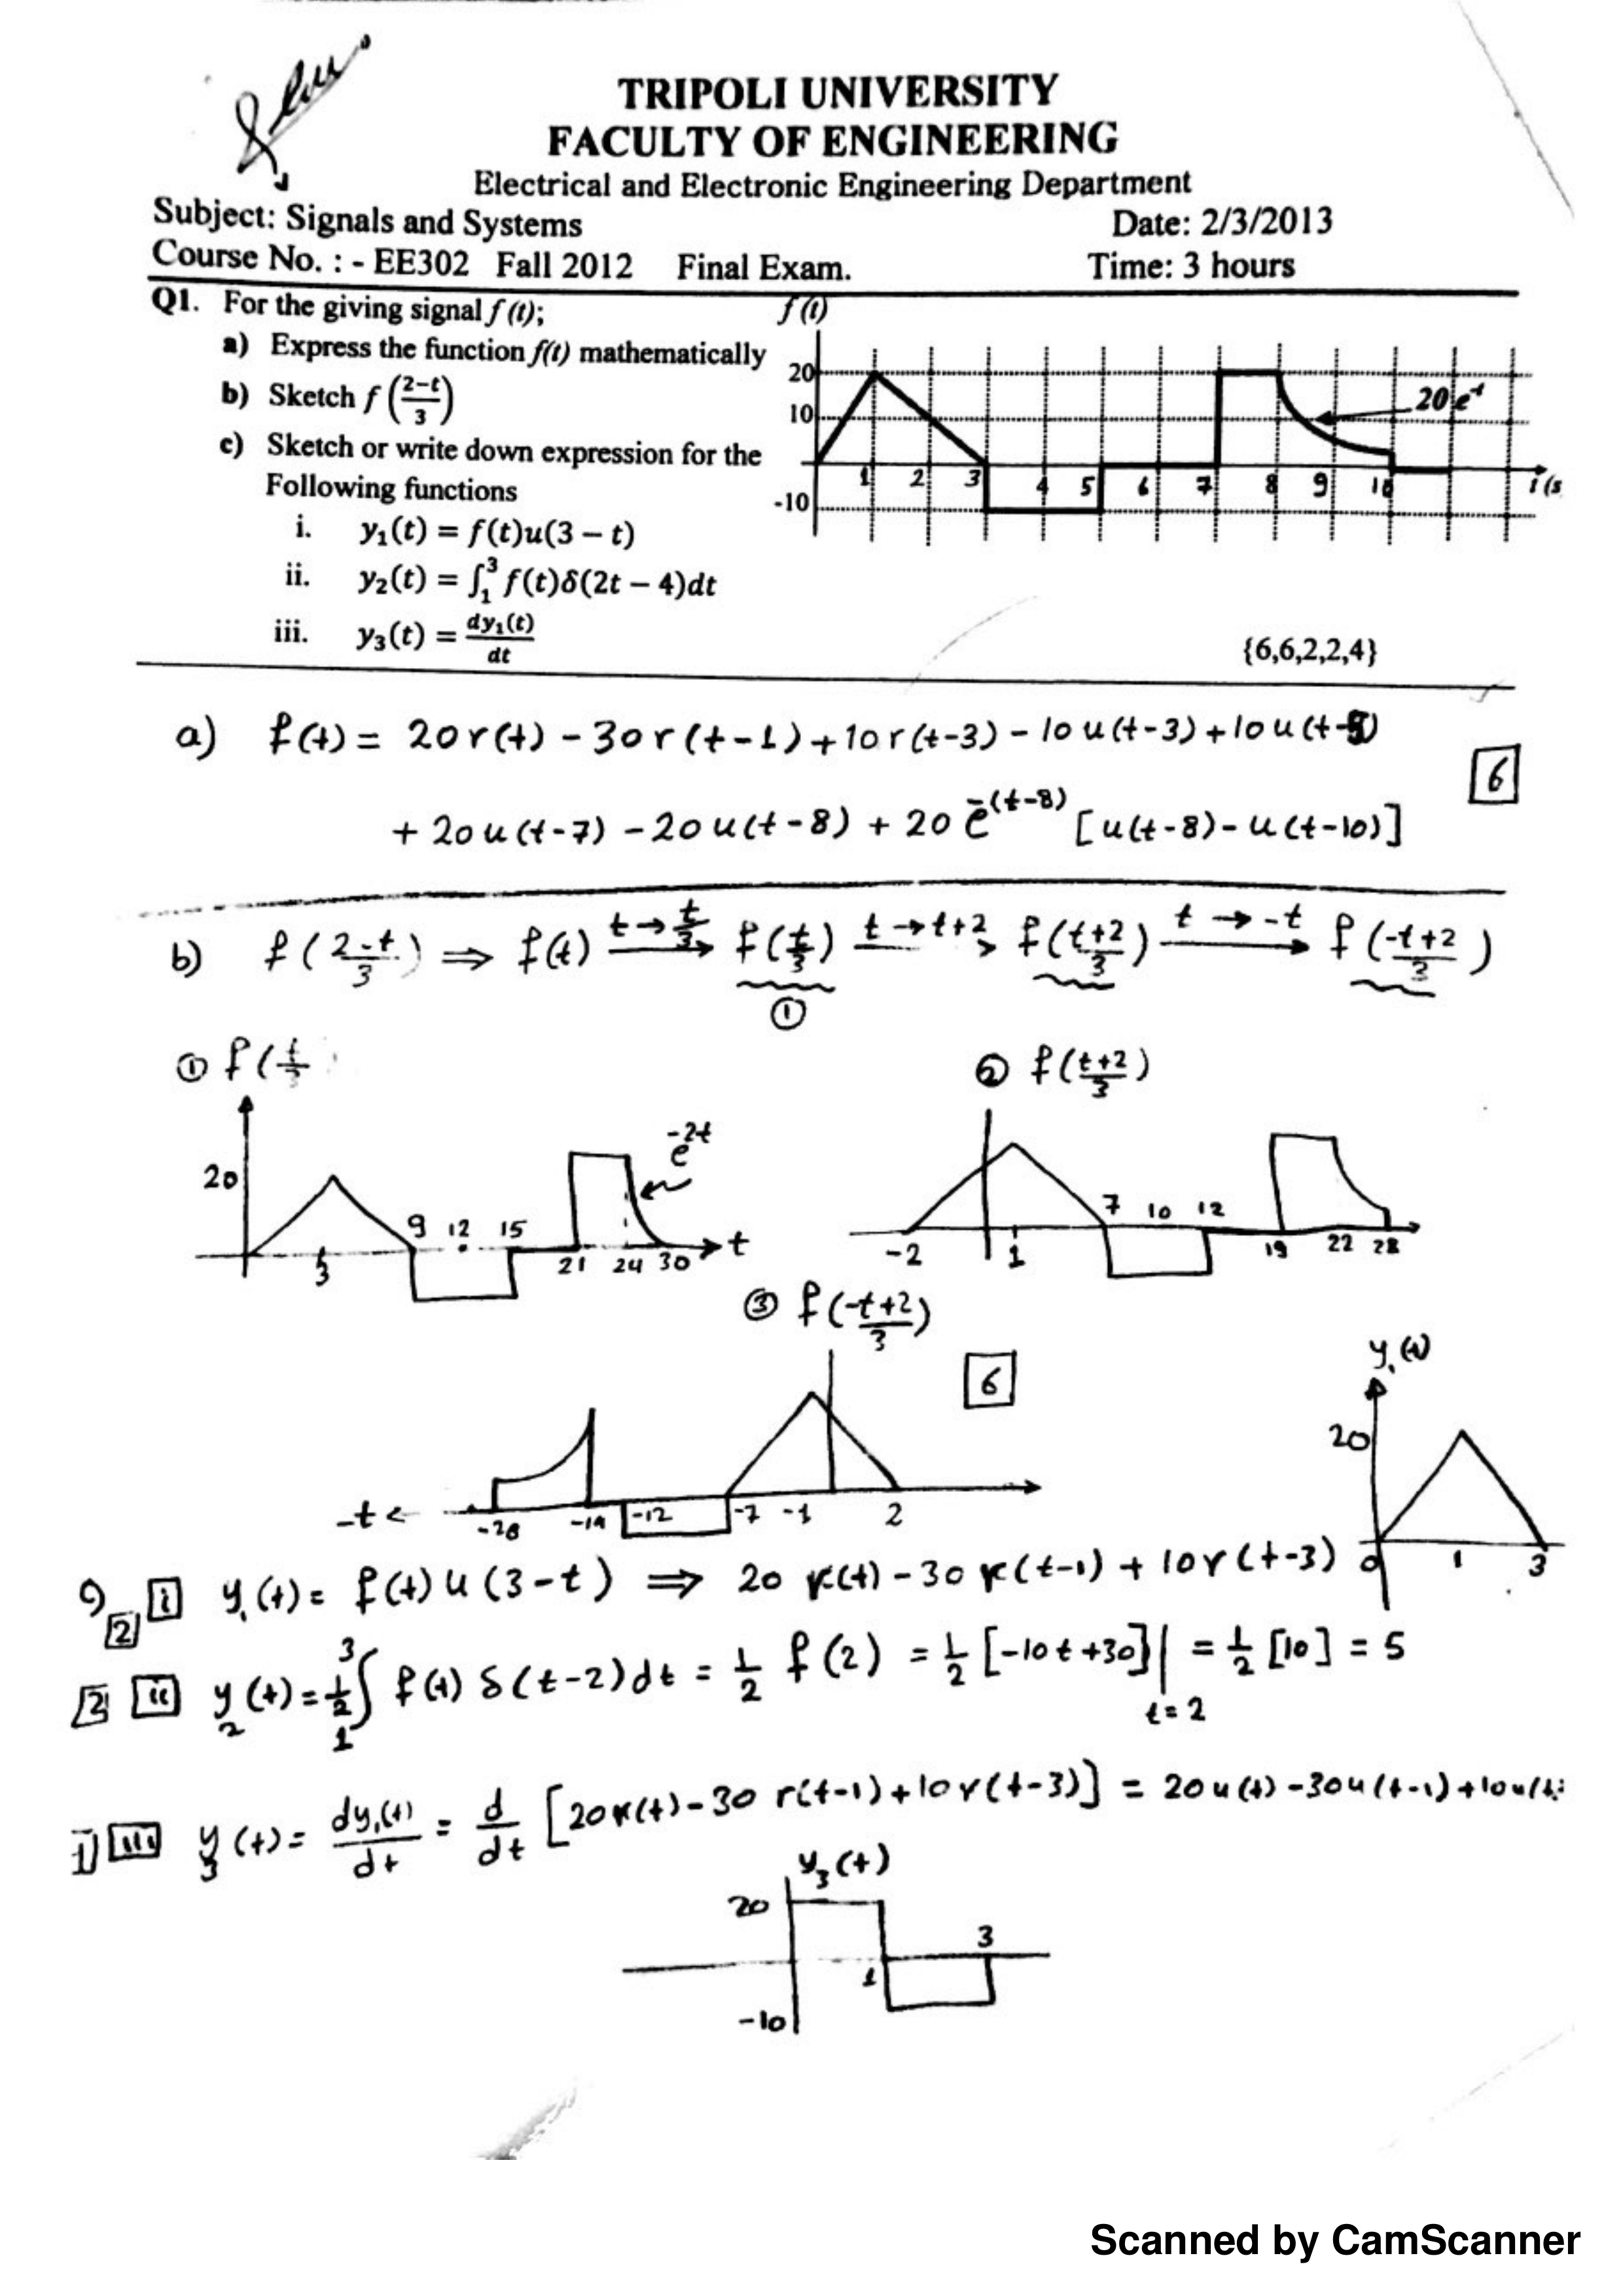 TRIPOLI UNIVERSITY
FACULTY OF ENGINEERING
Electrical and Electronic Engineering Department
Subject: Signals and Systems Date: 2/3/2013
Course No. : - EE302 Fall 2012 Final Exam. Time: 3 hours
Q1. For the giving signal f (t);
a) Express the function f(t) mathematically
b) Sketch f ((2−t)/3)
c) Sketch or write down expression for the
Following functions
i. y₁(t) = f(t)u(3 − t)
ii. y₂(t) = ∫₁³ f(t)δ(2t − 4)dt
iii. y₃(t) = dy₁(t)/dt
{6,6,2,2,4}
f (t)
20
10
-10
1 2 3 4 5 6 7 8 9 10 t (s
20 e⁻ᵗ
a) f(t) = 20 r(t) - 30 r(t-1) + 10 r(t-3) - 10 u(t-3) + 10 u(t-5)
6
+ 20 u(t-7) - 20 u(t-8) + 20 e^-(t-8) [u(t-8) - u(t-10)]
b) f((2-t)/3) ⇒ f(t) t→t/3 f(t/3) t→t+2 f((t+2)/3) t→-t f((-t+2)/3)
①
① f(t/3
20
3 9 12 15 21 24 30 t
e^-2t
② f((t+2)/3)
-2 1 7 10 12 19 22 28
③ f((-t+2)/3)
6
-t ← -28 -19 -12 -7 -1 2
y₁(t)
20
0 1 3
2 i y₁(t) = f(t) u(3-t) ⇒ 20 r(t) - 30 r(t-1) + 10 r(t-3)
2 ii y₂(t) = ½ ∫₁³ f(t) δ(t-2) dt = ½ f(2) = ½ [-10t+30]| t=2 = ½ [10] = 5
iii y₃(t) = dy₁(t)/dt = d/dt [20 r(t) - 30 r(t-1) + 10 r(t-3)] = 20 u(t) - 30 u(t-1) + 10 u(t-
y₃(t)
20
1 3
-10
Scanned by CamScanner